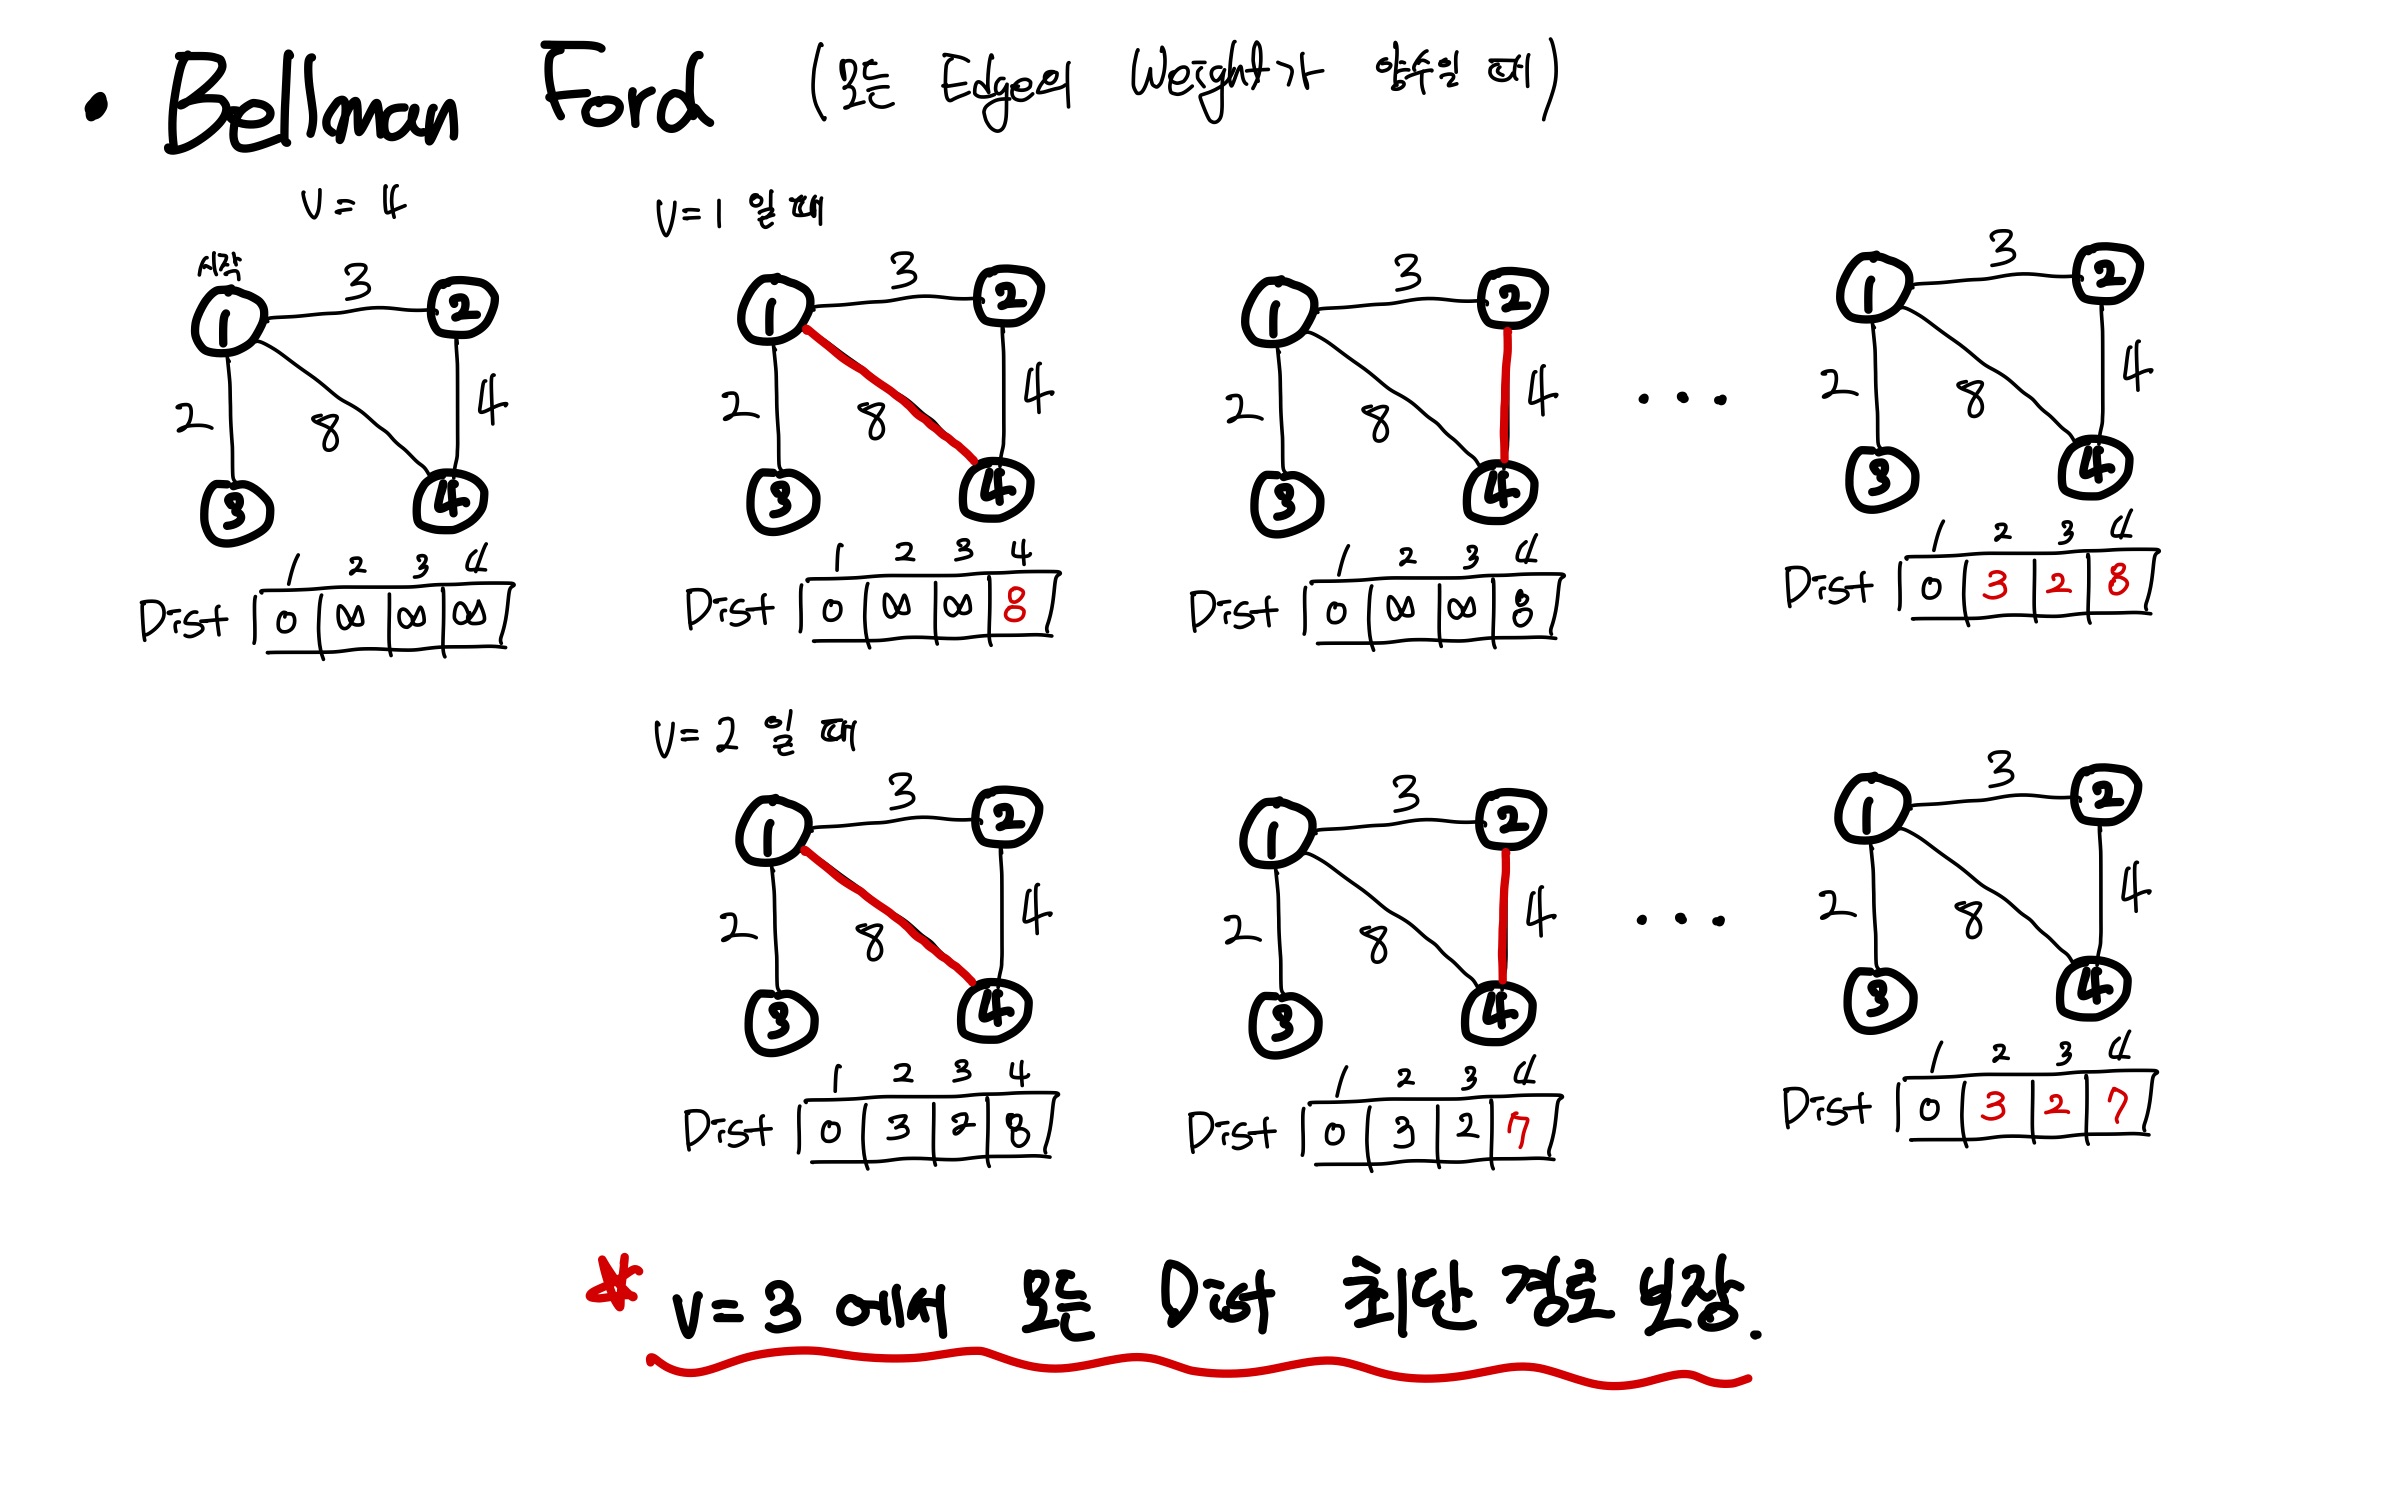 • Bellman Ford (모든 Edge의 Weight가 양수일 때)
V = 4
V = 1 일 때
시작
1 3 2
2 8 4
3 4
1 2 3 4
Dist 0 ∞ ∞ ∞
1 3 2
2 8 4
3 4
1 2 3 4
Dist 0 ∞ ∞ 8
1 3 2
2 8 4
3 4
1 2 3 4
Dist 0 ∞ ∞ 8
...
1 3 2
2 8 4
3 4
1 2 3 4
Dist 0 3 2 8
V = 2 일 때
1 3 2
2 8 4
3 4
1 2 3 4
Dist 0 3 2 8
1 3 2
2 8 4
3 4
1 2 3 4
Dist 0 3 2 7
...
1 3 2
2 8 4
3 4
1 2 3 4
Dist 0 3 2 7
* V = 3 에서 모든 Dist 최단 경로 보장.